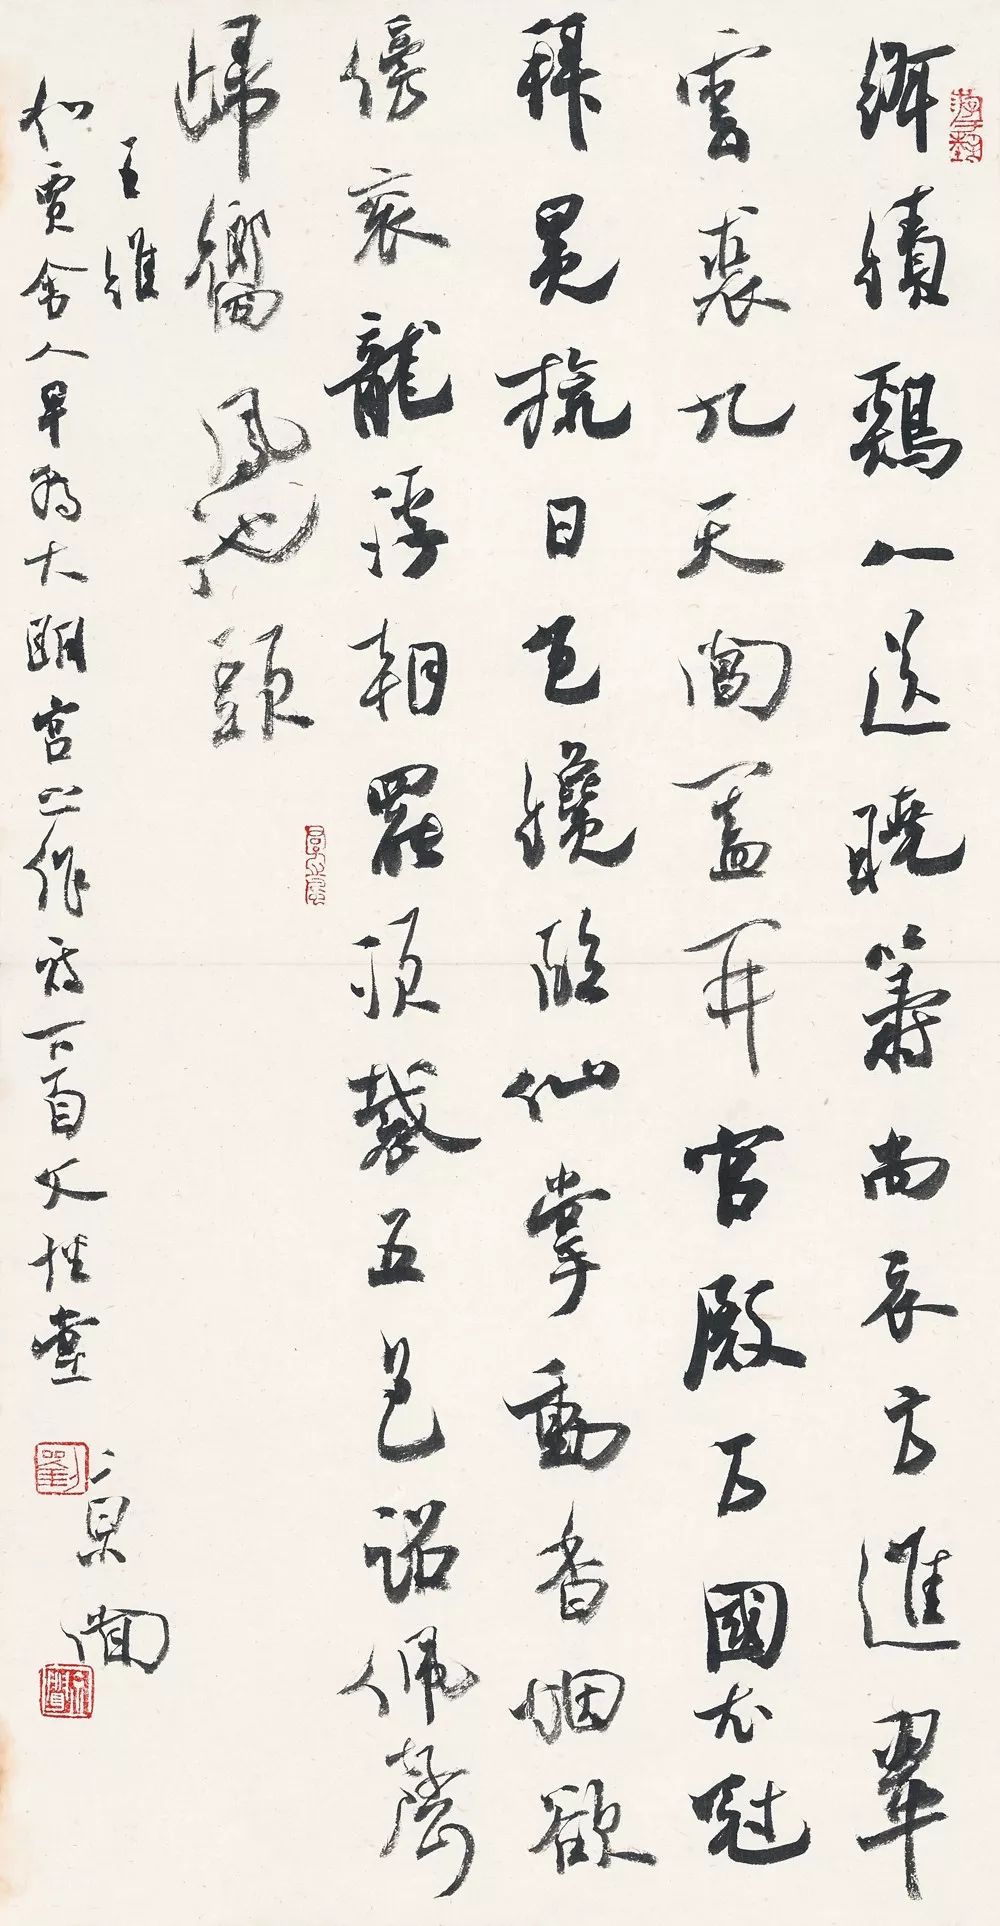 絳幘鷄人送曉籌尚衣方進翠
雲裘九天閶闔開宮殿万國衣冠
拜冕旒日色纔臨仙掌動香烟欲
傍袞龍浮朝罷須裁五色詔佩聲
歸嚮鳳池頭
王維
和賈舍人早朝大明宮之作詩一首
劉